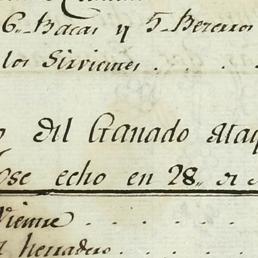 6,, Bacas y 5,, Bezerros
los Sirvientes . . . .
del Ganado
se echo en 28,, de
Vientre . . . .
herradero . . .